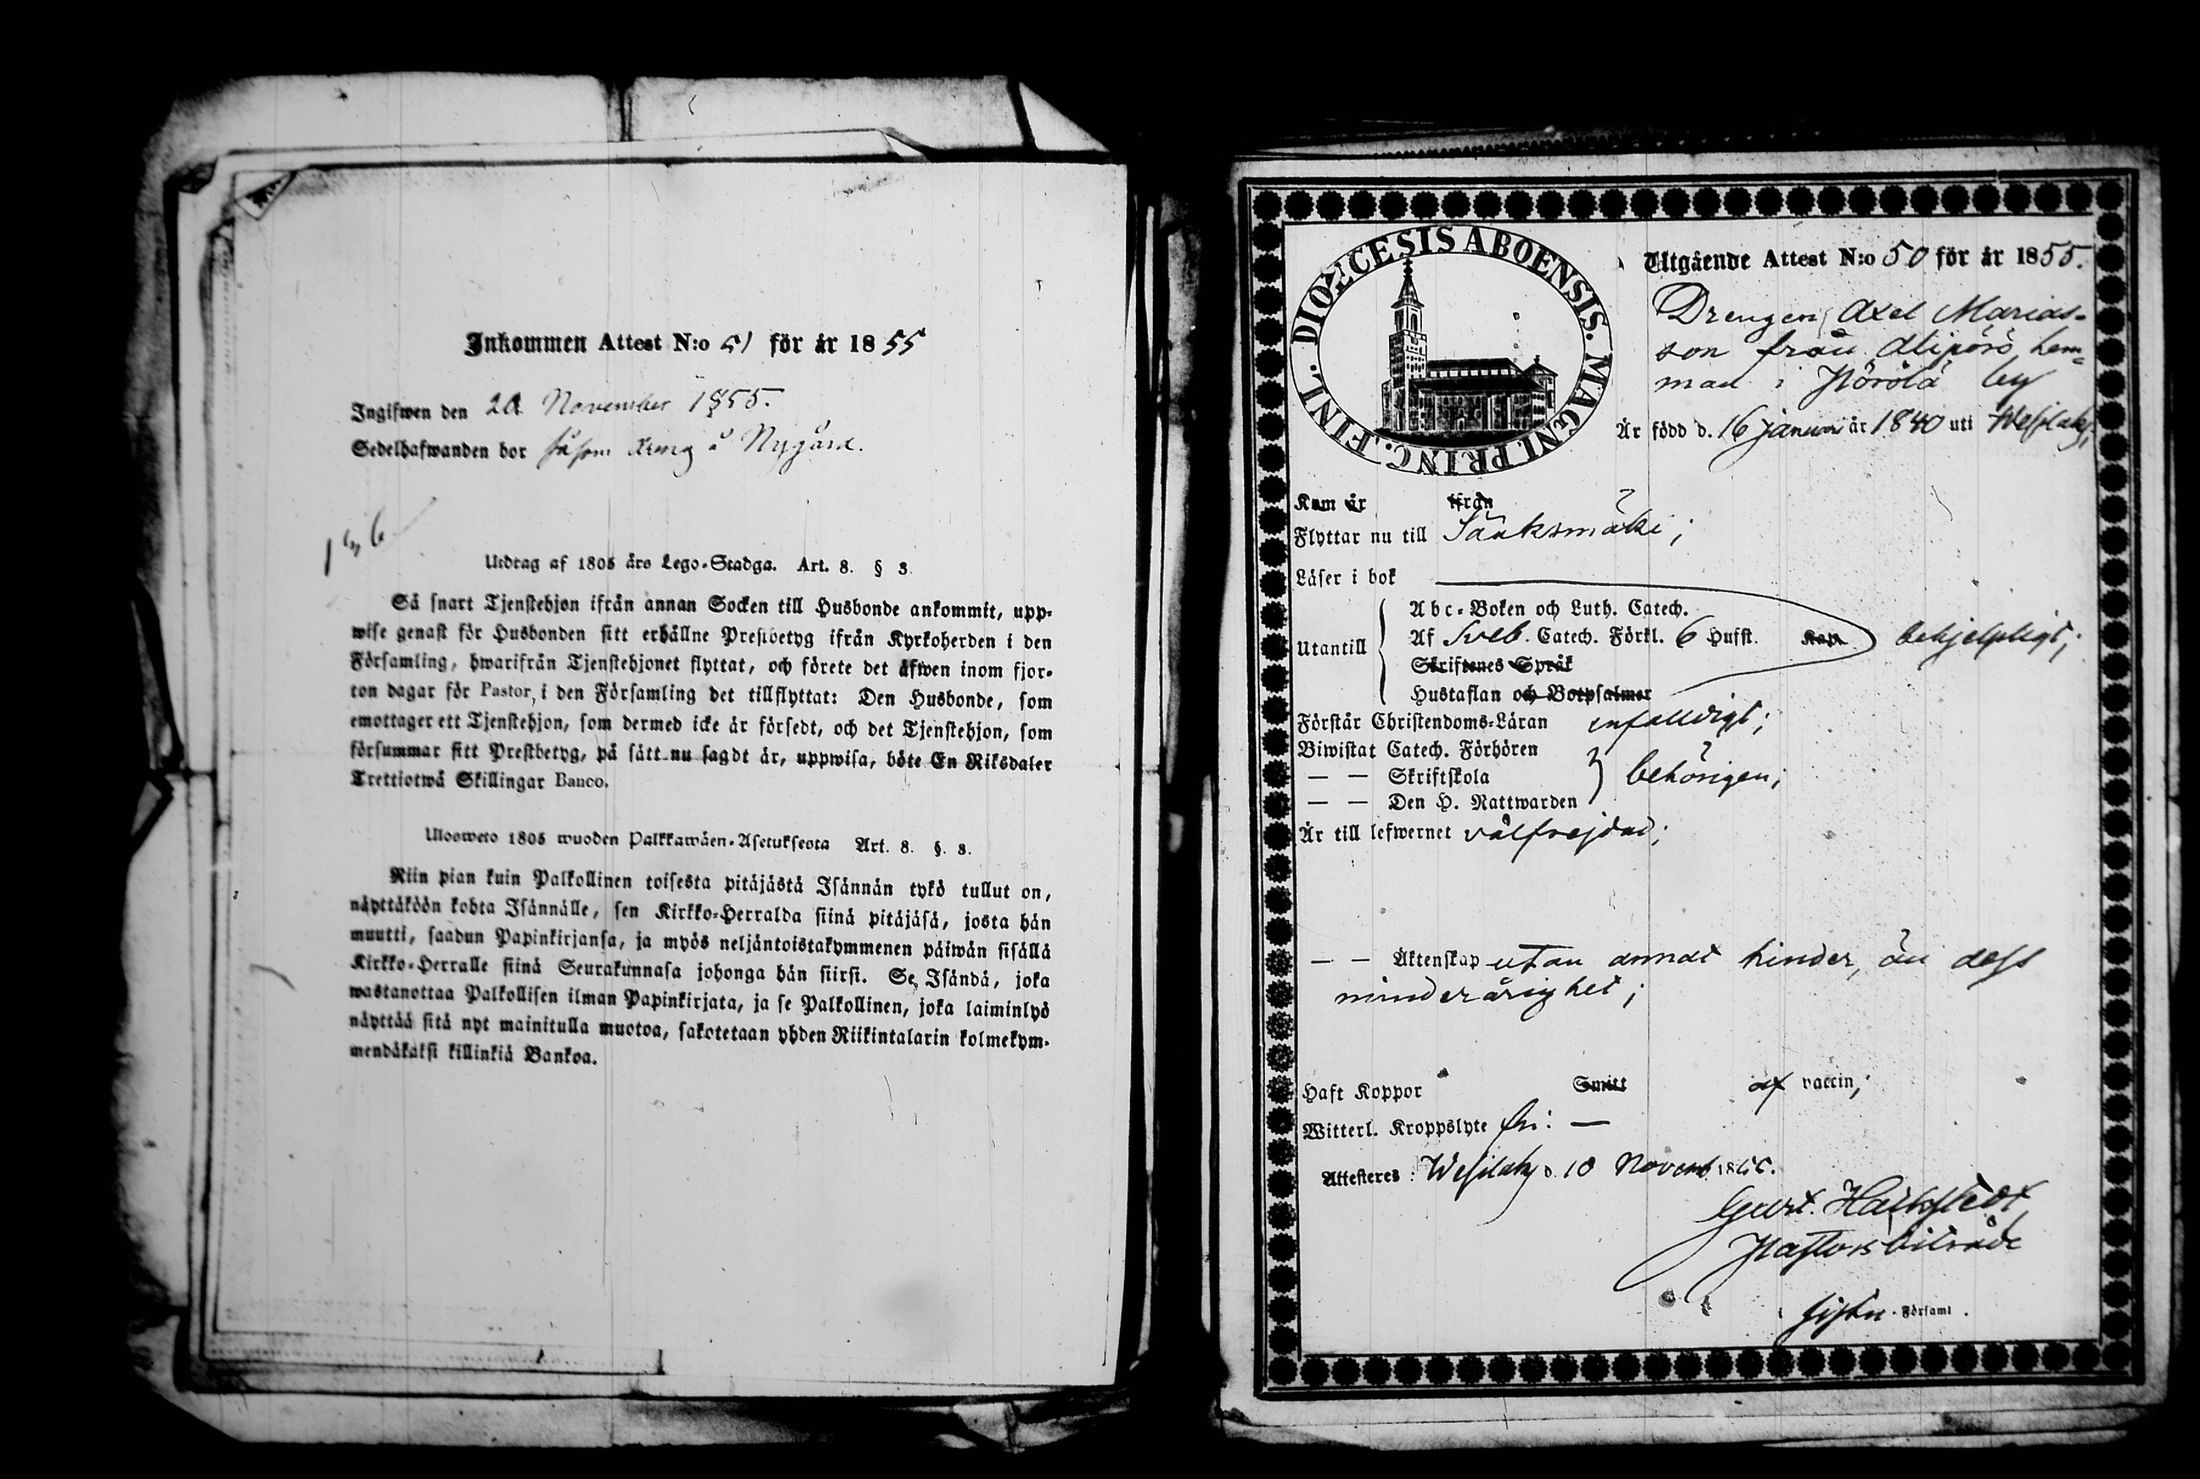 Inkommen Attest N:o 51 för år 1855
Ingifwen den 20 November 1855.
Sedelhafwanden bor såsom dreng å Nygård.
Utdrag af 1805 års Lego-Stadga. Art. 8. § 3.
Så snart Tjenstehjon ifrån annan Socken till Husbonde ankommit, upp-
wise genast för Husbonden sitt erhållne Prestbetyg ifrån Kyrkoherden i den
Församling, hwarifrån Tjenstehjonet flyttat, och förete det äfwen inom fjor-
ton dagar för Pastor, i den Församling det tillflyttat: Den Husbonde, som
emottager ett Tjenstehjon, som dermed icke är försedt, och det Tjenstehjon, som
försummar sitt Prestbetyg, på sätt nu sagdt är, uppwisa, böte En Riksdaler
Trettiotwå Skillingar Banco.
Ulosweto 1805 wuoden Palkkawäen-Asetuksesta Art. 8. §. 3.
Niin pian kuin Palkollinen toisesta pitäjästä Isännän tykö tullut on,
näyttäköön kohta Isännälle, sen Kirkko-Herralda siinä pitäjäsä, josta hän
muutti, saadun Papinkirjansa, ja myös neljäntoistakymmenen päiwän sisällä
Kirkko-Herralle siinä Seurakunnasa johonga hän siirsi. Se, Isändä, joka
wastanottaa Palkollisen ilman Papinkirjata, ja se Palkollinen, joka laiminlyö
näyttää sitä nyt mainitulla muotoa, sakotetaan yhden Riikintalarin kolmekym-
mendäkaksi killinkiä Bankoa.
DIOECESIS ABOENSIS. MAGNI. PRINC. FINL.
Utgående Attest N:o 50 för år 1855.
Drengen Axel Marias-
son från hem-
man i by
Är född d. 16 januari år 1840 uti Wesilaks,
Kom år ifrån
Flyttar nu till Sääksmäki;
Läser i bok
Utantill
Abc-Boken och Luth. Catech.
Af Sveb. Catech. Förkl. 6 Hufst. Kap. behjelpligt;
Skriftenes Språk
Hustaflan och Botpsalmer
Förstår Christendoms-Läran enfalldigt;
Biwistat Catech. Förhören
— — Skriftskola behörigen;
— — Den H. Nattwarden
Är till lefwernet välfrejdad;
— — Äktenskap utan annat hinder, än dess
minderårighet;
Haft Koppor Smitt af vaccin;
Witterl. Kroppslyte fri: —
Attesteres: Wesilaks d. 18 Novemb. 1855.
Gust. Hallstedt
Pastorsbiträde
i Församl.